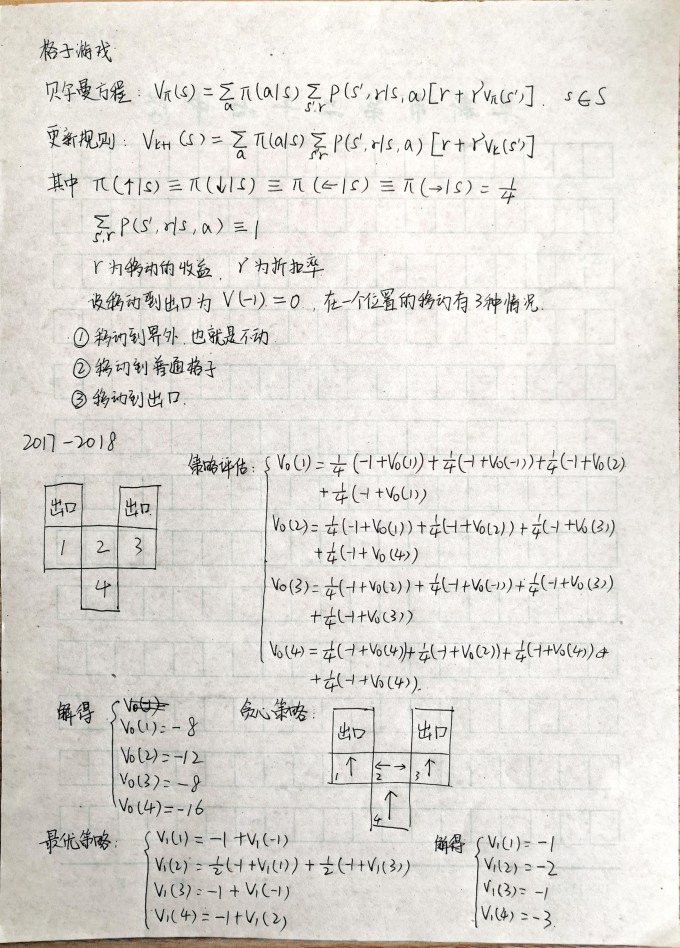 格子游戏
贝尔曼方程: Vπ(s) = Σa π(a|s) Σs',r P(s',r|s,a) [r + γVπ(s')]. s∈S
更新规则: Vk+1(s) = Σa π(a|s) Σs',r P(s',r|s,a) [r + γVk(s')]
其中 π(↑|s) ≡ π(↓|s) ≡ π(←|s) ≡ π(→|s) = 1/4
Σs',r P(s',r|s,a) ≡ 1
r为移动的收益, γ为折扣率
设移动到出口为 V(-1) = 0, 在一个位置的移动有3种情况.
① 移动到界外, 也就是不动
② 移动到普通格子
③ 移动到出口.
2017-2018
策略评估:
V0(1) = 1/4(-1+V0(1)) + 1/4(-1+V0(-1)) + 1/4(-1+V0(2)
+ 1/4(-1+V0(1))
V0(2) = 1/4(-1+V0(1)) + 1/4(-1+V0(2)) + 1/4(-1+V0(3))
+ 1/4(-1+V0(4))
V0(3) = 1/4(-1+V0(2)) + 1/4(-1+V0(-1)) + 1/4(-1+V0(3))
+ 1/4(-1+V0(3))
V0(4) = 1/4(-1+V0(4)) + 1/4(-1+V0(2)) + 1/4(-1+V0(4))
+ 1/4(-1+V0(4)).
出口 出口
1 2 3
4
解得
V0(1) = -8
V0(2) = -12
V0(3) = -8
V0(4) = -16
贪心策略:
出口 出口
1 ↑ 2 ←→ 3 ↑
4 ↑
最优策略:
V1(1) = -1 + V1(-1)
V1(2) = 1/2(-1+V1(1)) + 1/2(-1+V1(3))
V1(3) = -1 + V1(-1)
V1(4) = -1 + V1(2)
解得
V1(1) = -1
V1(2) = -2
V1(3) = -1
V1(4) = -3.